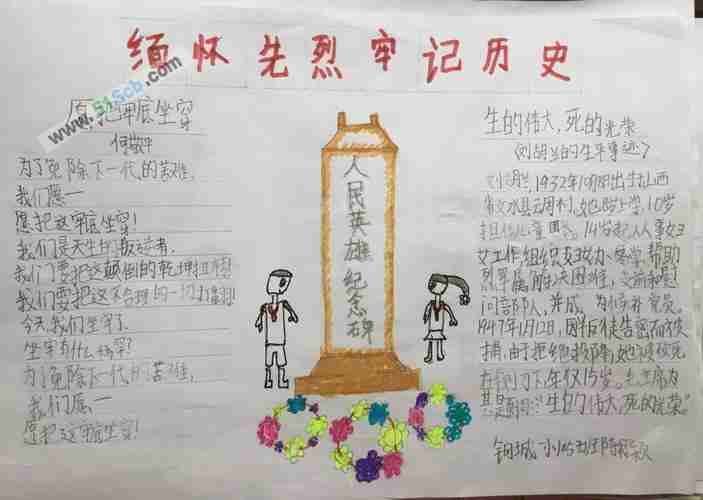 缅怀先烈牢记历史
www.51Scb.com
愿把牢底坐穿
何敬平
为了免除下一代的苦难,
我们愿一
愿把这牢底坐穿!
我们是天生的叛逆者.
我们要把这颠倒的乾坤扭转!
我们要把这不合理的一切打翻!
今天,我们坐牢了.
坐牢有什么稀罕?
为了免除下一代的苦难,
我们愿一
愿把这牢底坐穿!
人民英雄纪念碑
生的伟大,死的光荣
《刘胡兰的生平事迹》
刘胡兰,1932年10月8日出生山西
省文水县云周村,她8岁上学,10岁
担任儿童团长。14岁
女工作组织妇女办冬学,帮助
烈军属解决困难,
问部队,并成为候补党员。
1947年1月12日,因叛徒告密而被
捕,由于拒绝投降,她被
在铡刀下,年仅15岁。毛主席为
其题词:“生的伟大,死的光荣。”
钢城